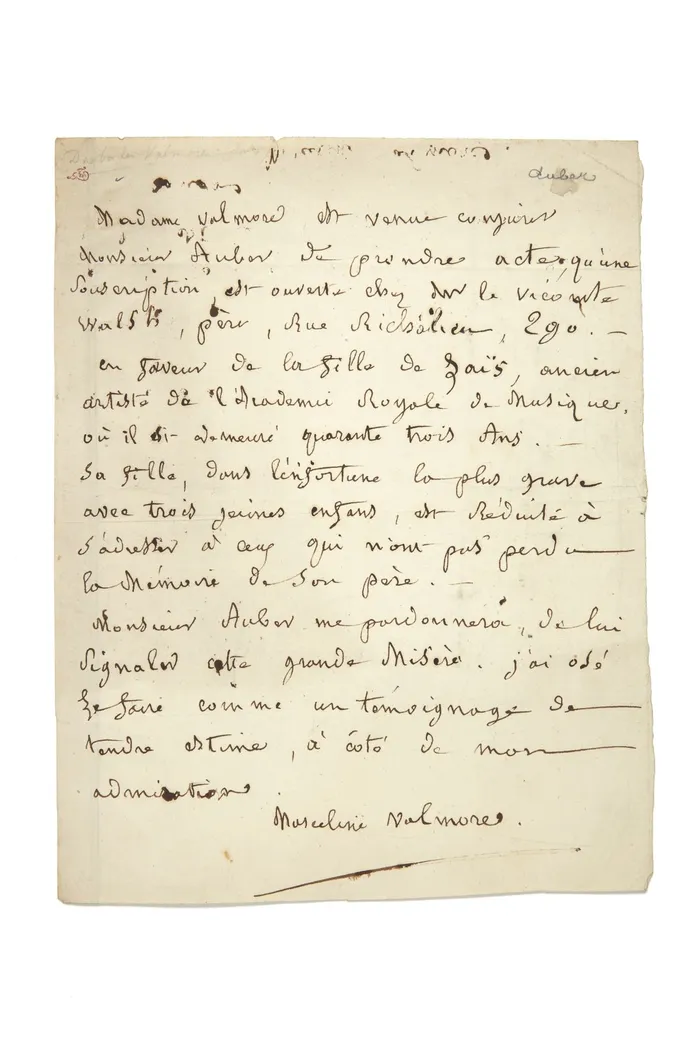 Auber
Madame Valmore est venue conjurer
Monsieur Auber de prendre acte, qu'une
Souscription, est ouverte chez Mr le vicomte
Walsh, père, Rue Richelieu, 290. —
en faveur de la fille de Zaïs, ancien
artiste de l'Académie Royale de Musique,
où il est demeuré quarante trois Ans. —
Sa fille, dans l'infortune la plus grave
avec trois jeunes enfans, est Réduite à
S'adresser à ceux qui n'ont pas perdu
la Mémoire de Son père. —
Monsieur Auber me pardonnera, de lui
Signaler cette grande Misère. j'ai osé
le faire comme un témoignage de
tendre estime, à côté de mon
admiration.
Marceline Valmore.